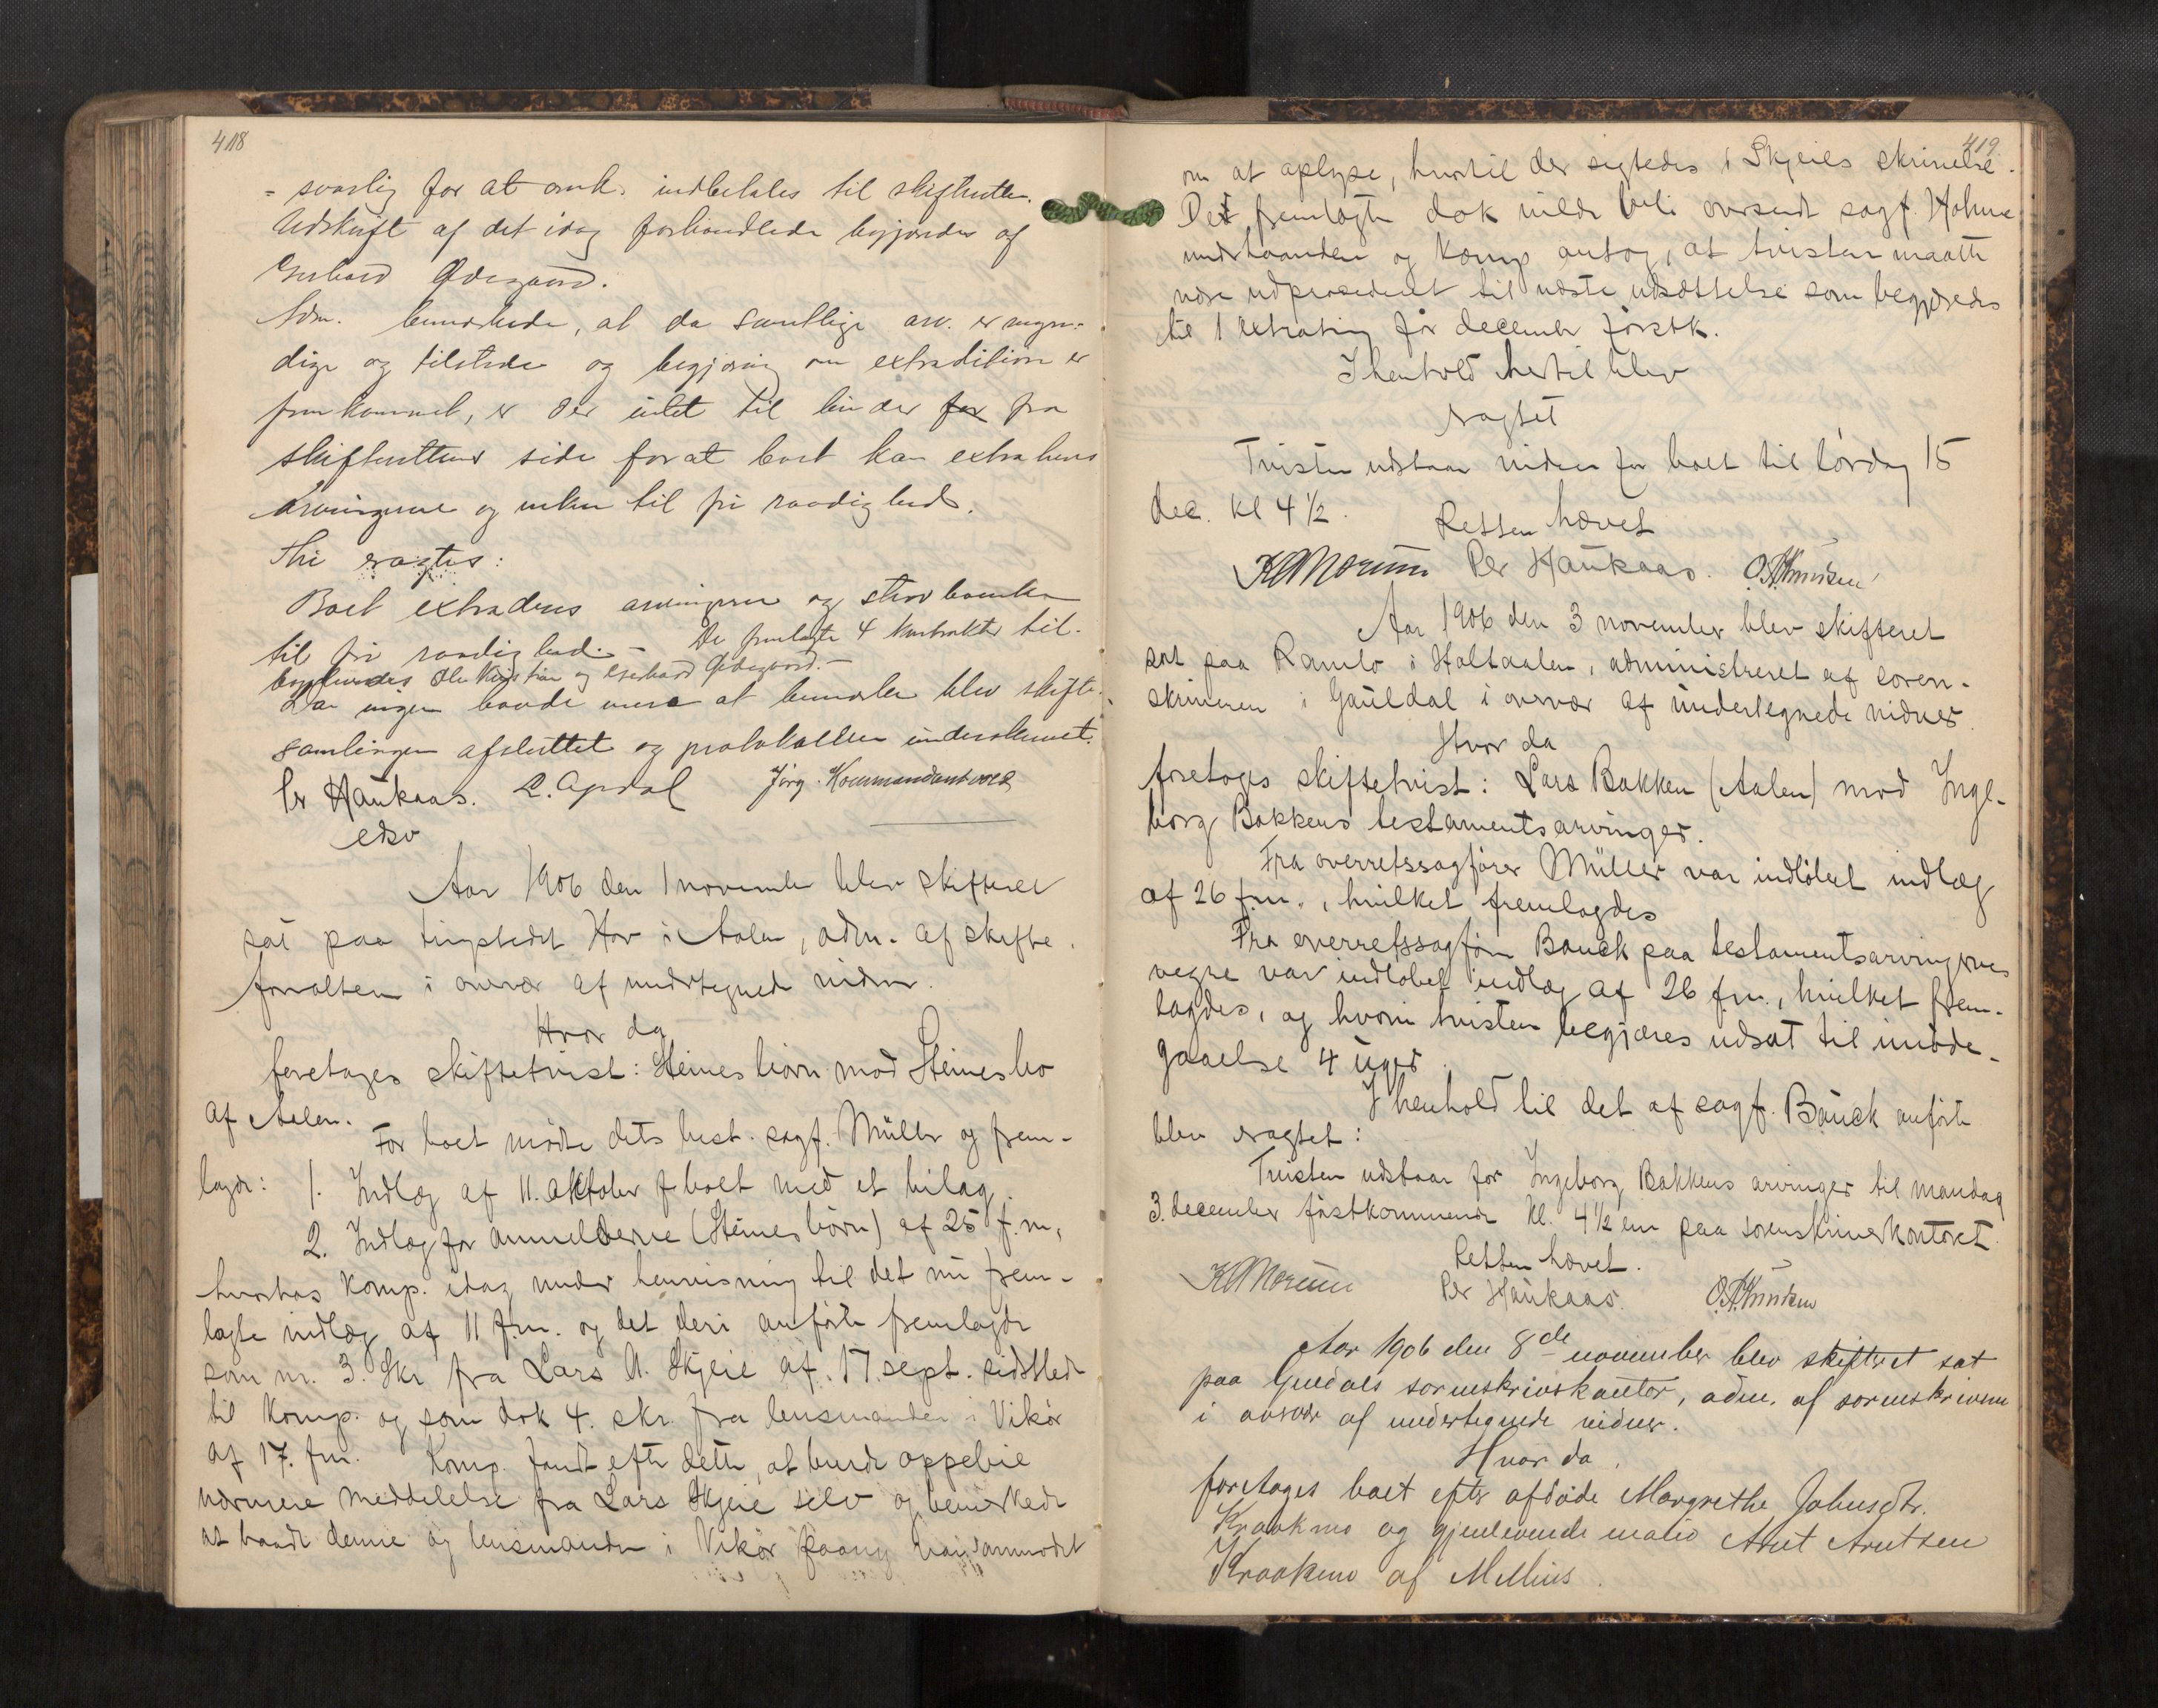 418
- svarlig for at omk. indbetales til skifteretten.
Udskrift af det idag forhandlede begjærdes af
Gerhard Ødegaard.
Adm. bemærkede, at da samtlige arv. er myn-
dige og tilstede og begjæring om extradition er
fremkommet, er der intet til hinder for fra
skifterettens side forat boet kan extraheres
arvingerne og enken til fri raadighed.
Thi eragtes:
Boet extraderes arvingerne og stervboenken
til fri raadighed. - De fremlagte 4 kontrakter til-
Ole Kristian og Gerhard Ødegaard. -
Da ingen havde mere at bemærke blev skifte-
samlingen afsluttet og protokollen underskrevet.
Per Haukaas. Jørg. Kommandantvold
edsv
Aar 1906 den 1 november blev skifteret
sat paa tingstedet Hov i Aalen, adm. af skifte-
forvalteren i overvær af undertegnede vidner.
Hvor da
foretoges skiftetvist: Steines børn mod Steines bo
af Aalen.
For boet mødte dets best. sagf. Müller og frem-
lagde: 1. Indlæg af 11. oktober f boet med et bilag.
2. Indlæg for anmelderne (Steines børn) af 25 f.m,
hvorhos komp. idag under henvisning til det nu frem-
lagte indlæg af 11 f.m. og det deri anførte fremlagde
som nr. 3. Skr fra Lars A. Skjeie af 17. sept. sidstleden
til komp. og som dok 4. skr. fra lensmanden i Vikør
af 17. f.m. Komp. fandt efter dette, at burde oppebie
nærmere meddelelse fra Lars Skjeie selv og bemerkede
at baade denne og lensmanden i Vikør paany var anmodet
419.
om at oplyse, hvortil der sigtedes i Skjeies skrivelse.
Det fremlagte dok vilde bli oversendt sagf. Holme
underhaanden og komp antog, at tvisten maatte
være udprocederet til næste udsættelse som begjæredes
til 1 extrating før december førstk.
I henhold hertil blev
eragtet
Tvisten udstaar videre for boet til lørdag 15
dec. kl 4 ½.
Retten hævet
KAMorum Per Haukaas. O.A.Knudsen
Aar 1906 den 3 november blev skifteret
sat paa Ramlo i Holtaalen, administreret af soren-
skriveren i Gauldal i overvær af undertegnede vidner.
Hvor da
foretoges skiftetvist: Lars Bakken (Aalen) mod Inge-
borg Bakkens testamentsarvinger.
Fra overretssagfører Müller var indløbet indlæg
af 26 f.m., hvilket fremlagdes
Fra overretssagfører Bauck paa testamentsarvingernes
vegne var indløbet indlæg af 26 f.m., hvilket frem-
lagdes, og hvori tvisten begjæres udsat til imøde-
gaaelse 4 uger.
I henhold til det af sagf. Bauck anførte
blev eragtet:
Tvisten udstaar for Ingeborg Bakkens arvinger til mandag
3. december førstkommende kl. 4 ½ em paa sorenskriverkontoret.
Retten hævet.
KAMorum Per Haukaas. O.A.Knudsen
Aar 1906 den 8de november blev skifteret sat
paa Guldals sorenskriverkontor, adm. af sorenskriveren
i overvær af undertegnede vidner.
Hvor da
foretoges boet efter afdøde Margrethe Johnsdtr.
Kraakmo og gjenlevende mand Arnt Arntsen
Kraakmo af Melhus.